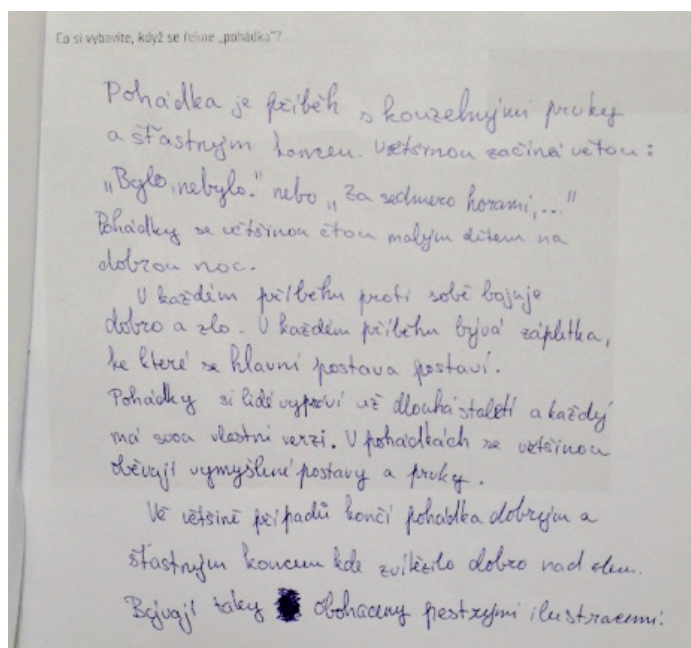 Co si vybavíte, když se řekne „pohádka"?
Pohádka je příběh s kouzelnými prvky
a šťastným koncem. Většinou začíná větou:
„Bylo, nebylo." nebo „Za sedmero horami,..."
Pohádky se většinou čtou malým dětem na
dobrou noc.
V každém příběhu proti sobě bojuje
dobro a zlo. V každém příběhu bývá zápletka,
ke které se hlavní postava postaví.
Pohádky si lidé vypráví už dlouhá staletí a každý
má svou vlastní verzi. V pohádkách se většinou
oběvují vymyšlené postavy a prvky.
Ve většině případů končí pohádka dobrým a
šťastným koncem kde zvítězilo dobro nad zlem.
Bývají taky obohaceny pestrými ilustracemi.